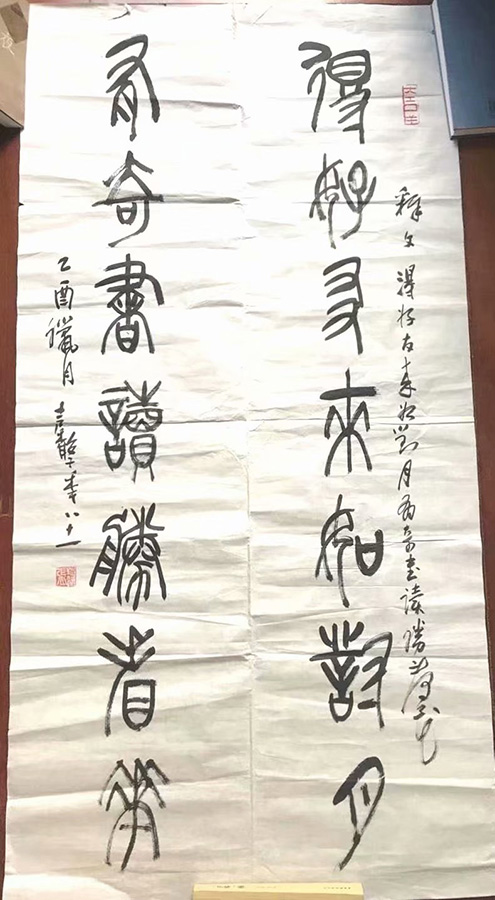 釋文 得好友来如對月有奇書讀勝看花
得好友來如對月
有奇書讀勝看花
乙酉臘月 年八十一